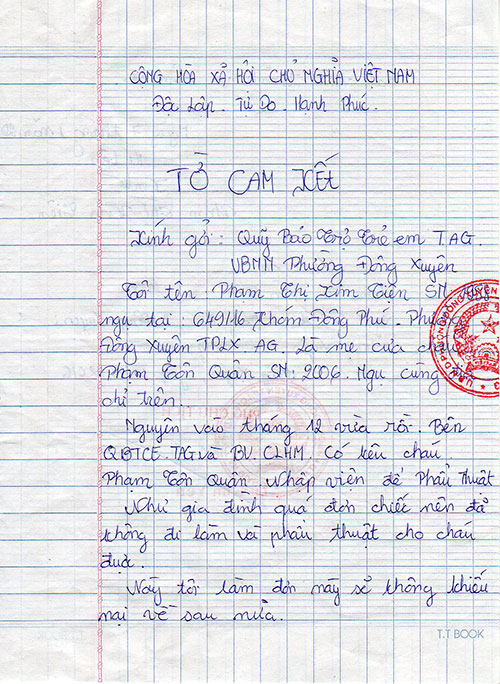 CÔNG HÒA XẢ HỘI CHỦ NGHĨA VIỆT NAM
Độc Lập . Tự Do . Hạnh Phúc .
TỜ CAM KẾT
Kính gởi : Quỹ Bảo Trợ Trẻ em T.AG.
UBNN Phường Đông Xuyên
Tôi tên : Phạm Thị Kim Tiên SN
ngụ tại : 649/16 Khóm Đông Phú .
Đông Xuyên TPLX AG. Là mẹ của cháu
Phạm Tôn Quân SN : 2006. Ngụ cùng
chỉ trên.
Nguyên vào tháng 12 vừa rồi. Bên
QBTCE.TAG và BV.CLHM. Có kêu cháu
Phạm Tôn Quân. Nhập viên để Phẩu Thuật
Như gia đình quá đơn chiếc nên đả
không đi làm và phẩu thuật cho cháu
được.
Nay tôi làm đơn này sẻ không khiếu
nại về sau nửa.
T.T BOOK